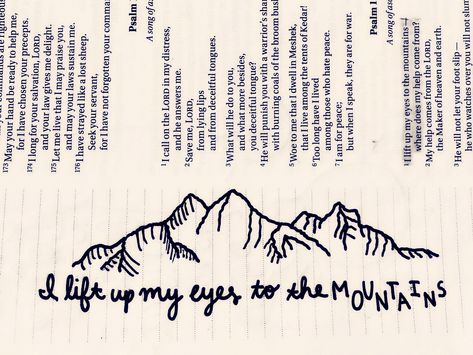 commands are righteous
173 May your hand be ready to help me,
for I have chosen your precepts.
174 I long for your salvation, LORD,
and your law gives me delight.
175 Let me live that I may praise you,
and may your laws sustain me.
176 I have strayed like a lost sheep.
Seek your servant,
for I have not forgotten your comma
Psalm
A song of as
1 I call on the LORD in my distress,
and he answers me.
2 Save me, LORD,
from lying lips
and from deceitful tongues.
3 What will he do to you,
and what more besides,
you deceitful tongue?
4 He will punish you with a warrior's shar
with burning coals of the broom bus
5 Woe to me that I dwell in Meshek,
that I live among the tents of Kedar!
6 Too long have I lived
among those who hate peace.
7 I am for peace;
but when I speak, they are for war.
Psalm 1
A song of as
1 I lift up my eyes to the mountains —
where does my help come from?
2 My help comes from the LORD,
the Maker of heaven and earth.
3 He will not let your foot slip —
he who watches over you will not slum
I lift up my eyes to the MOUNTAINS